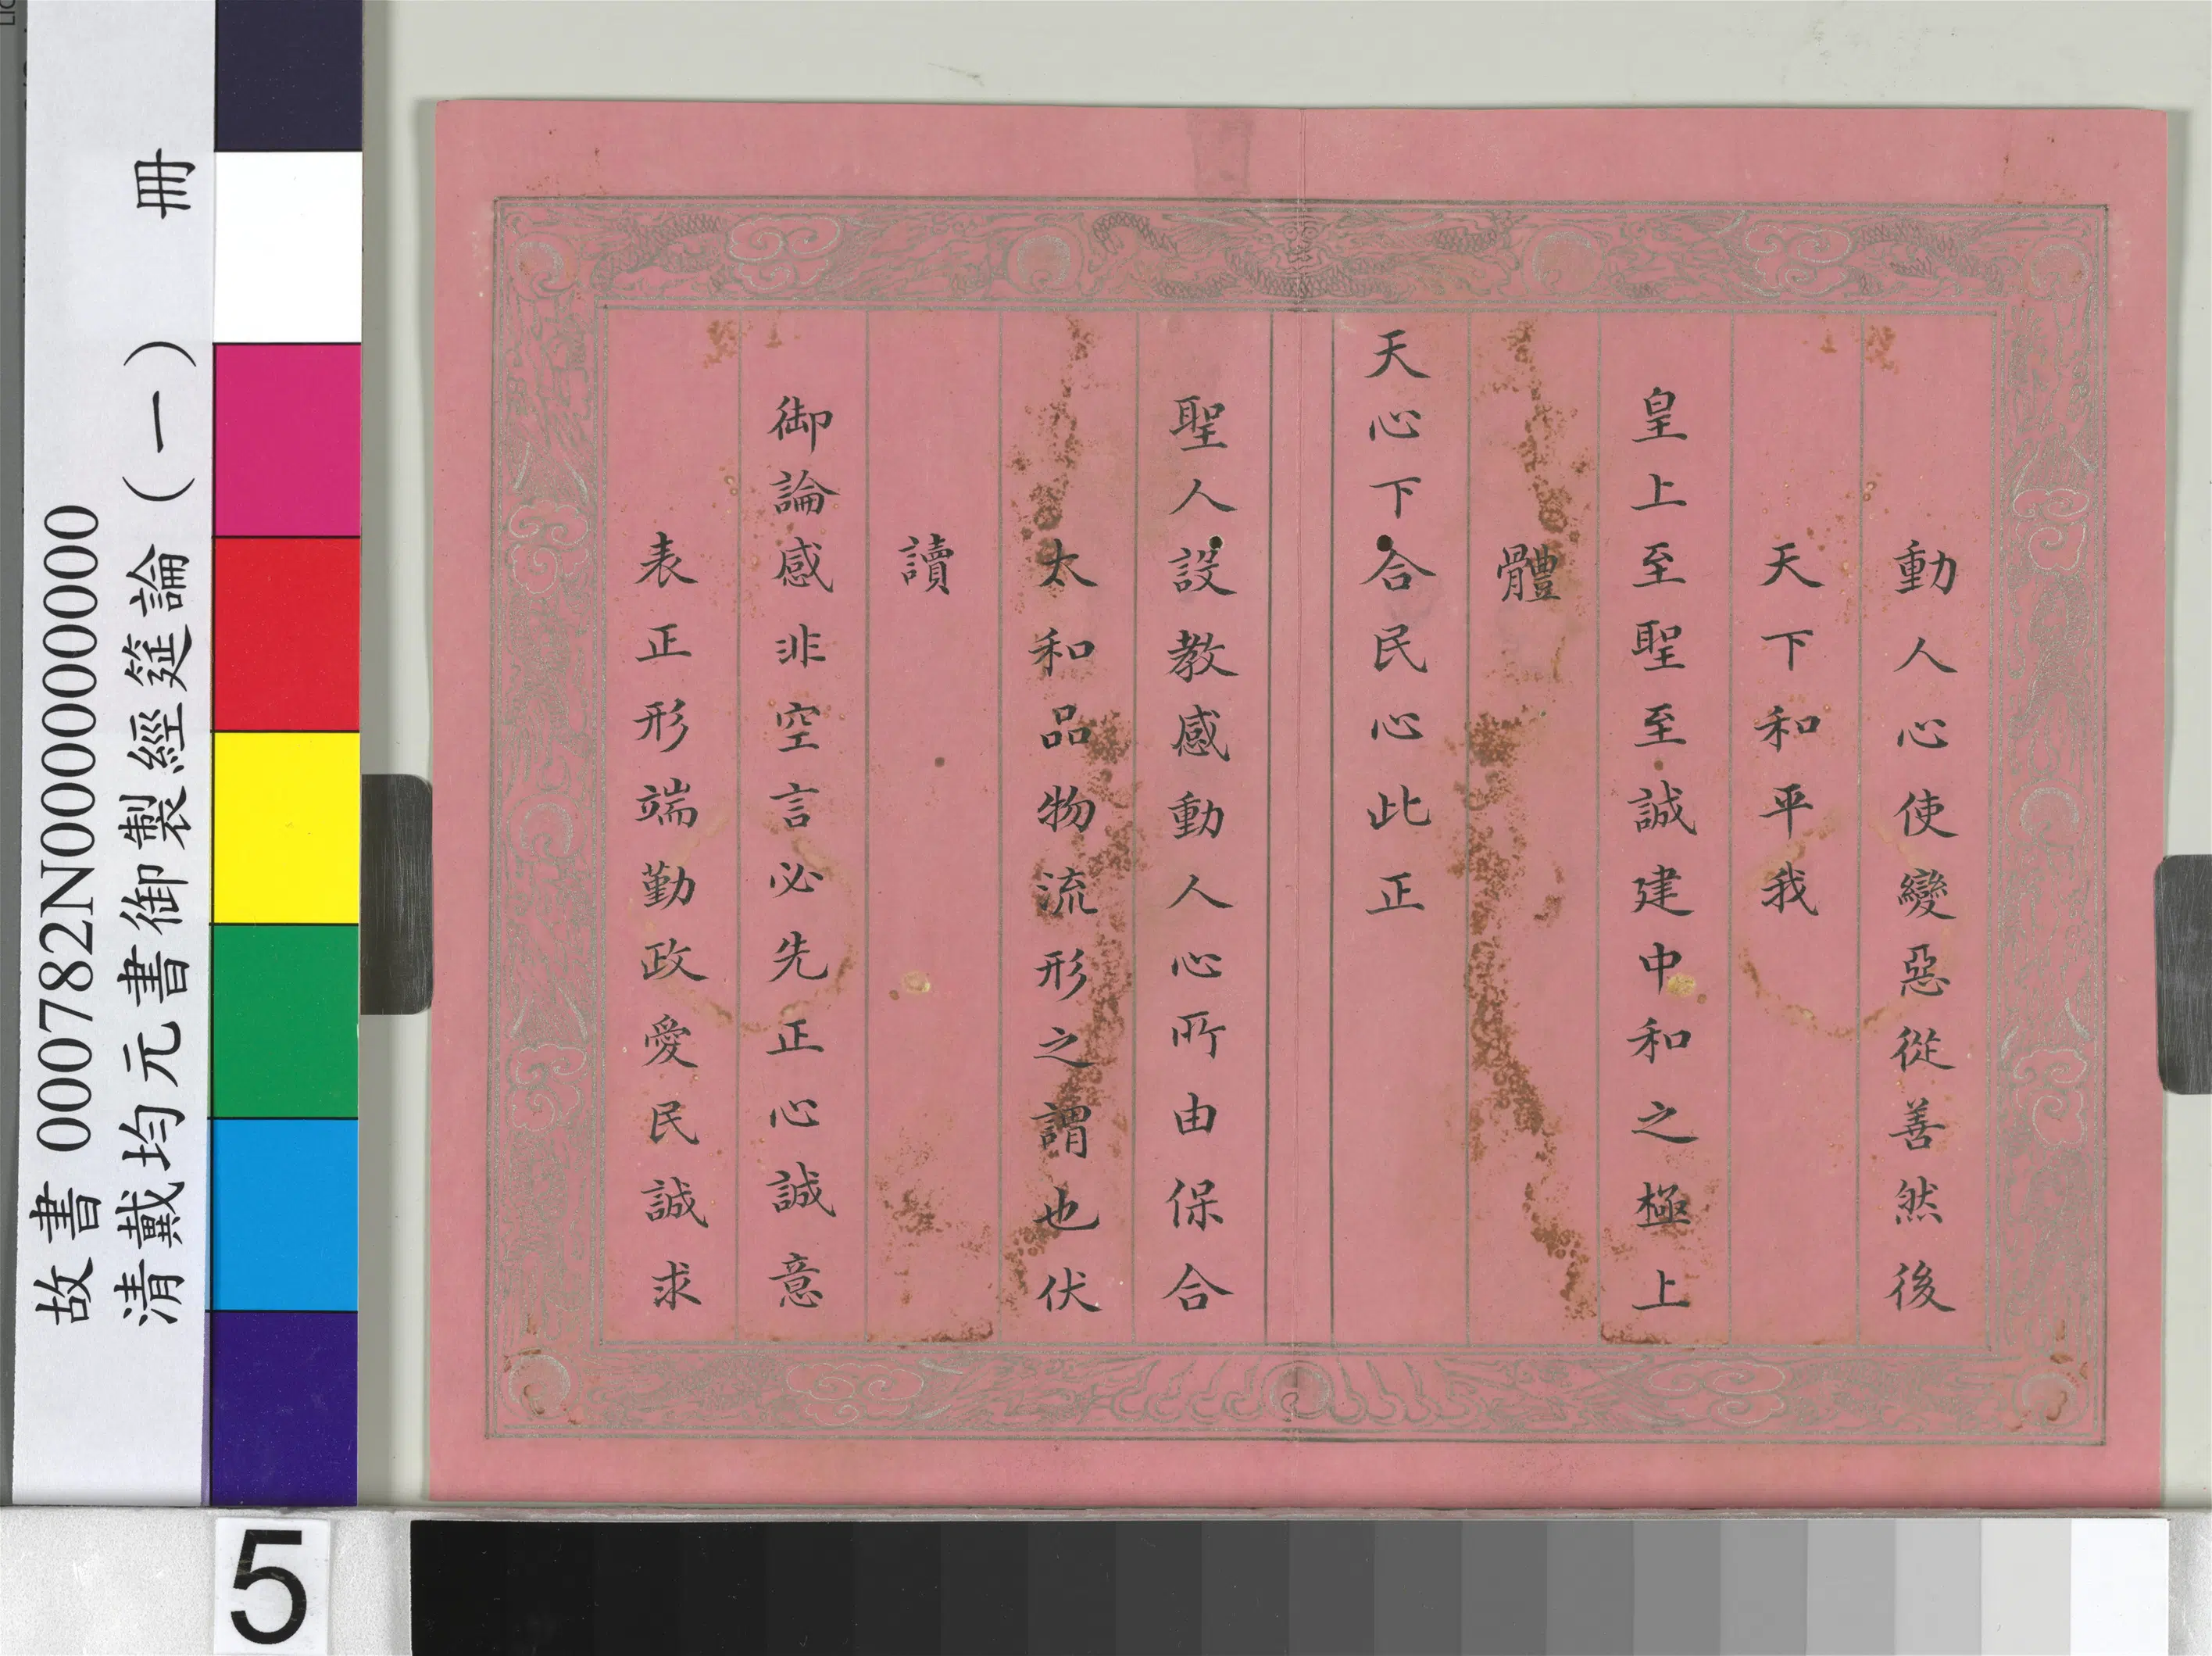 動人心使變惡從善然後
天下和平我
皇上至聖至誠建中和之極上
體
天心下合民心此正
聖人設教感動人心所由保合
太和品物流形之謂也伏
讀
御論感非空言必先正心誠意
表正形端勤政愛民誠求
故書 000782N000000000
清戴均元書御製經筵論(一) 冊
5